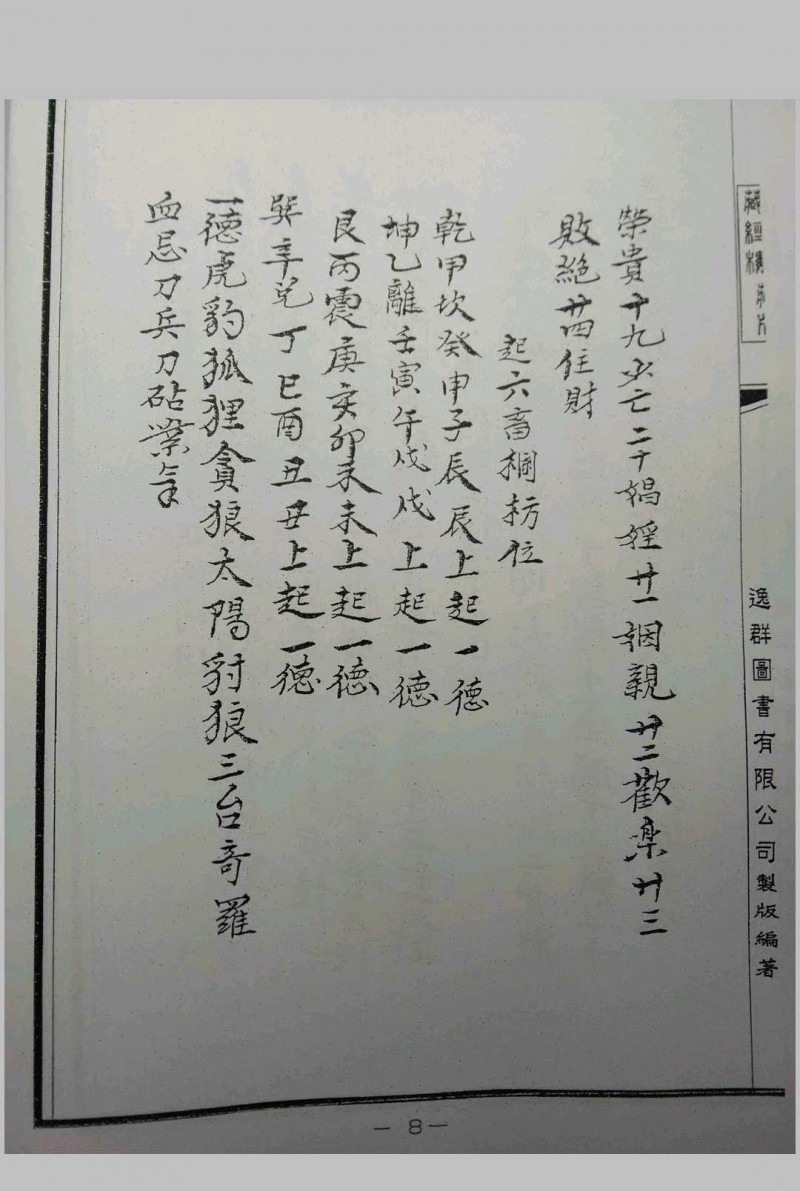 榮貴十九少亡二十娼婬廿一姻親廿二歡楽廿三
敗絕廿四住財
起六畜欄枋位
乾甲坎癸申子辰辰上起一德
坤乙離壬寅午戌戌上起一德
艮丙震庚亥卯未未上起一德
巽辛兌丁巳酉丑丑上起一德
一德虎豹狐狸貪狼太陽豺狼三台奇羅
血忌刀兵刀砧業氣
逸群圖書有限公司製版編著
— 8 —